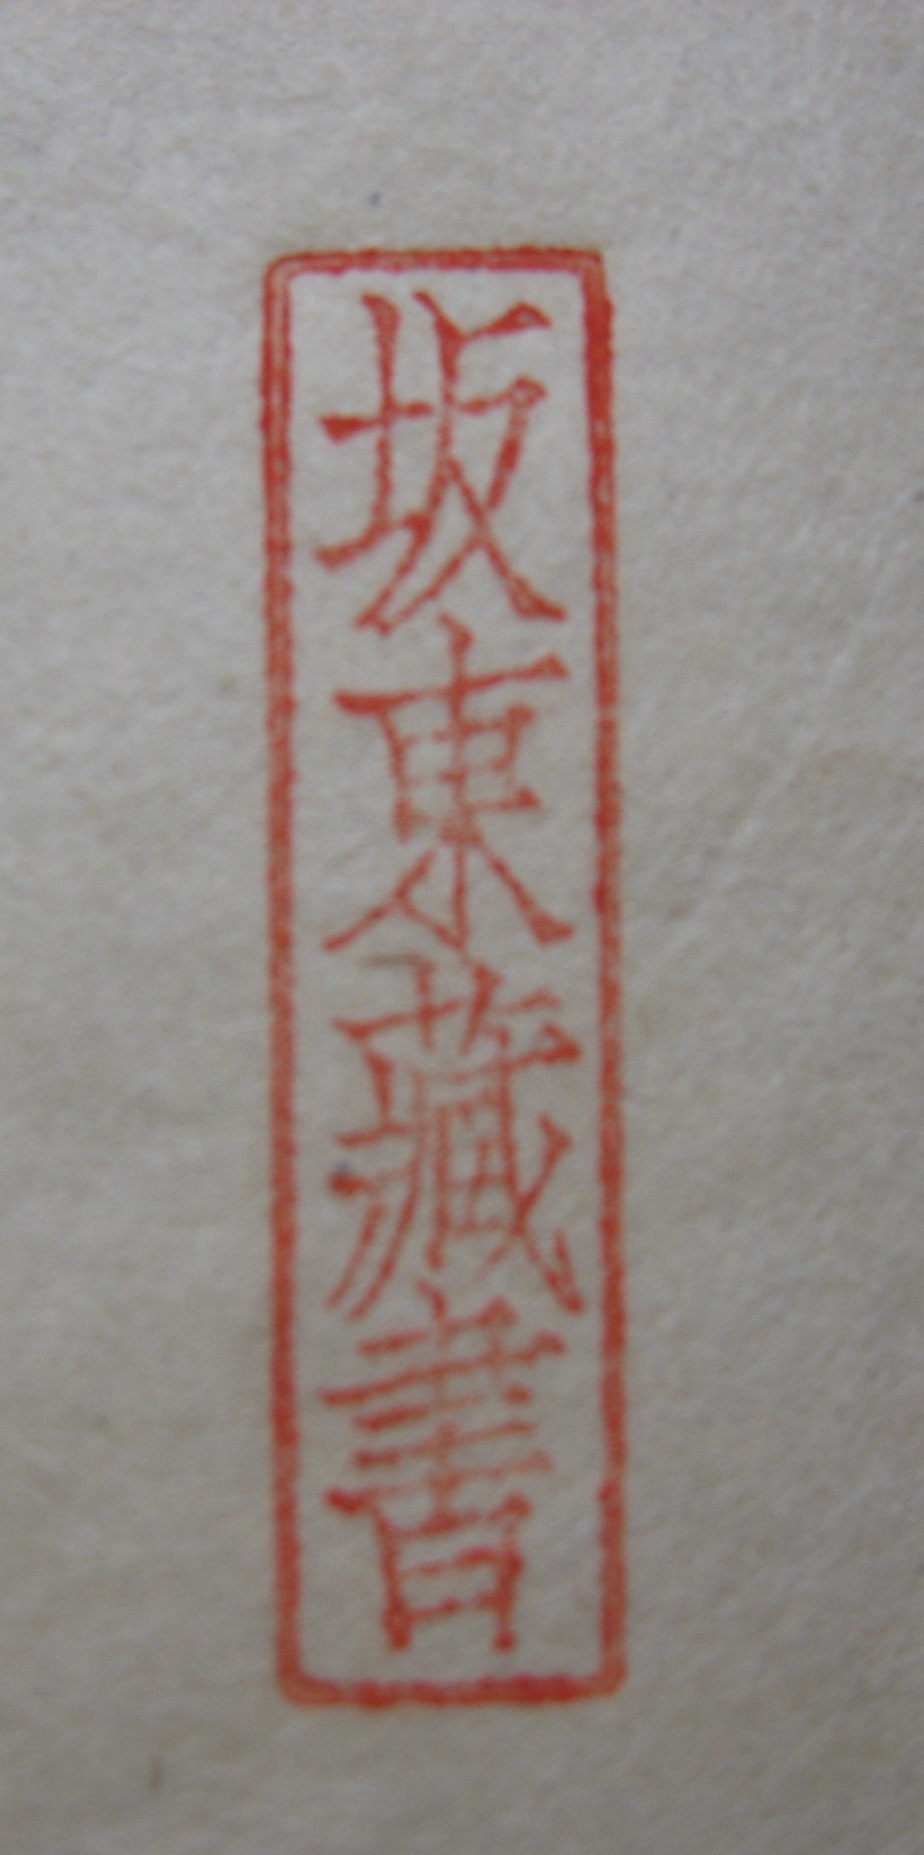 坂東藏書